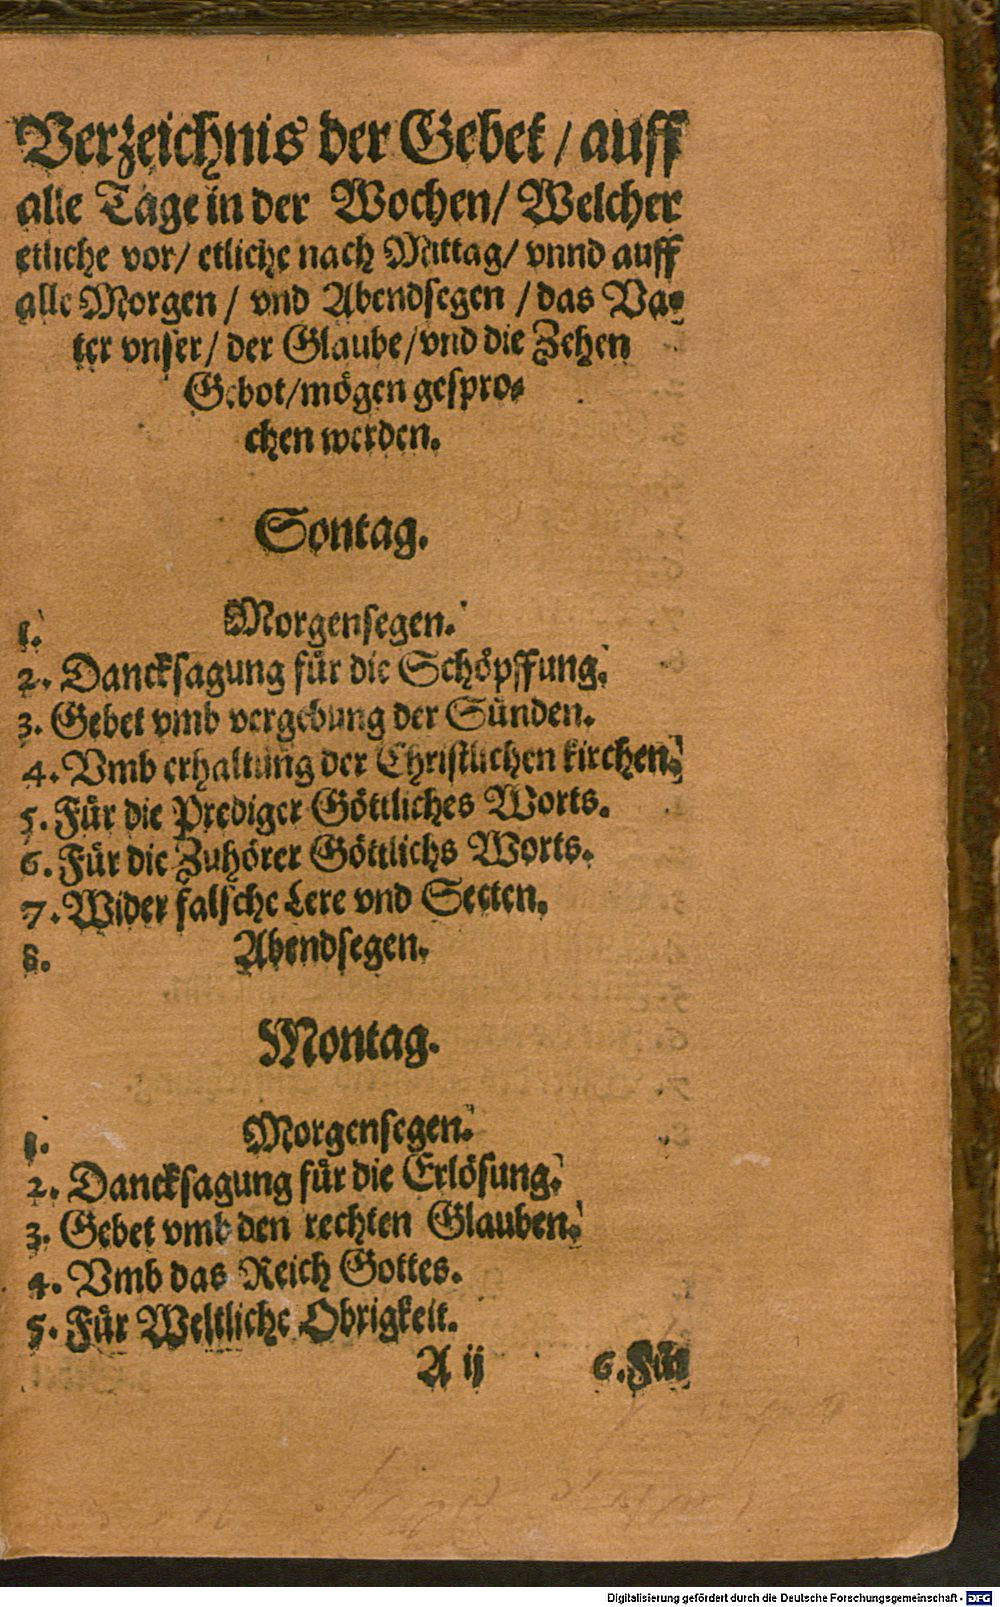 Verzeichnis der Gebet / auff
alle Tage in der Wochen / Welcher
etliche vor / etliche nach Mittag / vnnd auff
alle Morgen / vnd Abendsegen / das Va-
ter vnser / der Glaube / vnd die Zehen
Gebot / mögen gespro-
chen werden.
Sontag.
1. Morgensegen.
2. Dancksagung für die Schöpffung.
3. Gebet vmb vergebung der Sünden.
4. Vmb erhaltung der Christlichen kirchen.
5. Für die Prediger Göttliches Worts.
6. Für die Zuhörer Göttlichs Worts.
7. Wider falsche Lere vnd Secten.
8. Abendsegen.
Montag.
1. Morgensegen.
2. Dancksagung für die Erlösung.
3. Gebet vmb den rechten Glauben.
4. Vmb das Reich Gottes.
5. Für Weltliche Obrigkeit.
A ij 6. Für
Digitalisierung gefördert durch die Deutsche Forschungsgemeinschaft - DFG